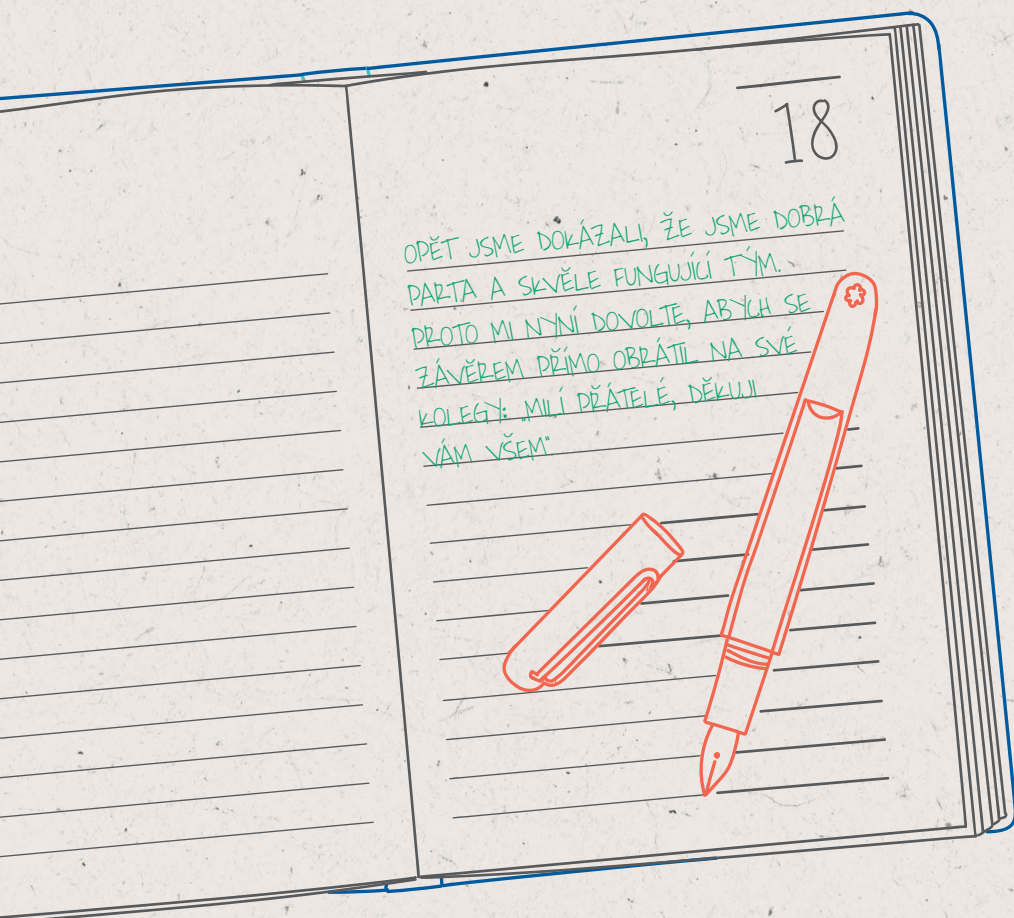 18
OPĚT JSME DOKÁZALI, ŽE JSME DOBRÁ
PARTA A SKVĚLE FUNGUJÍCÍ TÝM.
PROTO MI NYNÍ DOVOLTE, ABYCH SE
ZÁVĚREM PŘÍMO OBRÁTIL NA SVÉ
KOLEGY: „MILÍ PŘÁTELÉ, DĚKUJI
VÁM VŠEM“